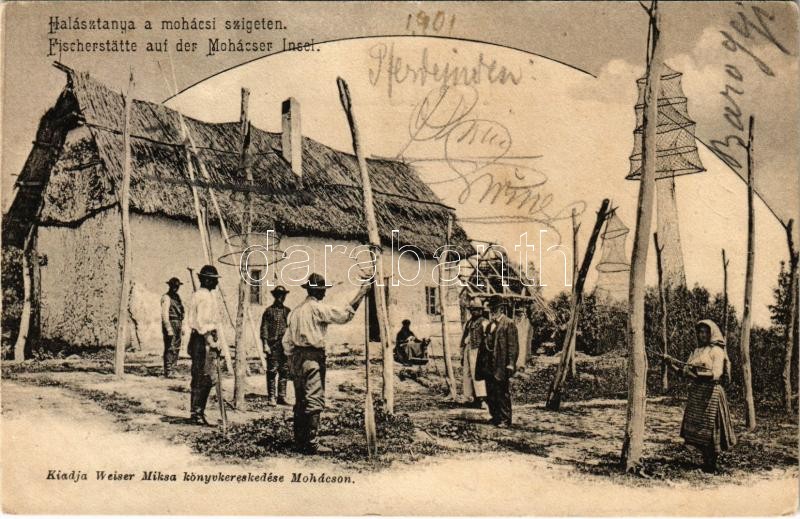 Halásztanya a mohácsi szigeten.
Fischerstätte auf der Mohácser Insel.
1901
darabanth.com
Kiadja Weiser Miksa könyvkereskedése Mohácson.